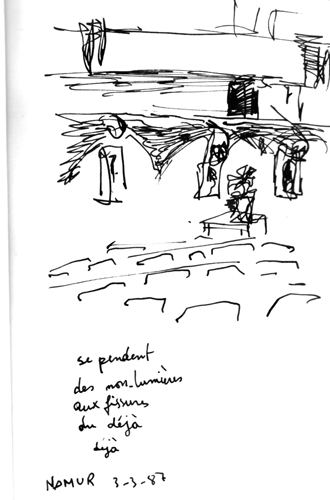 se pendent
des non-lumières
aux fissures
du déjà
déjà
NAMUR 3-3-87